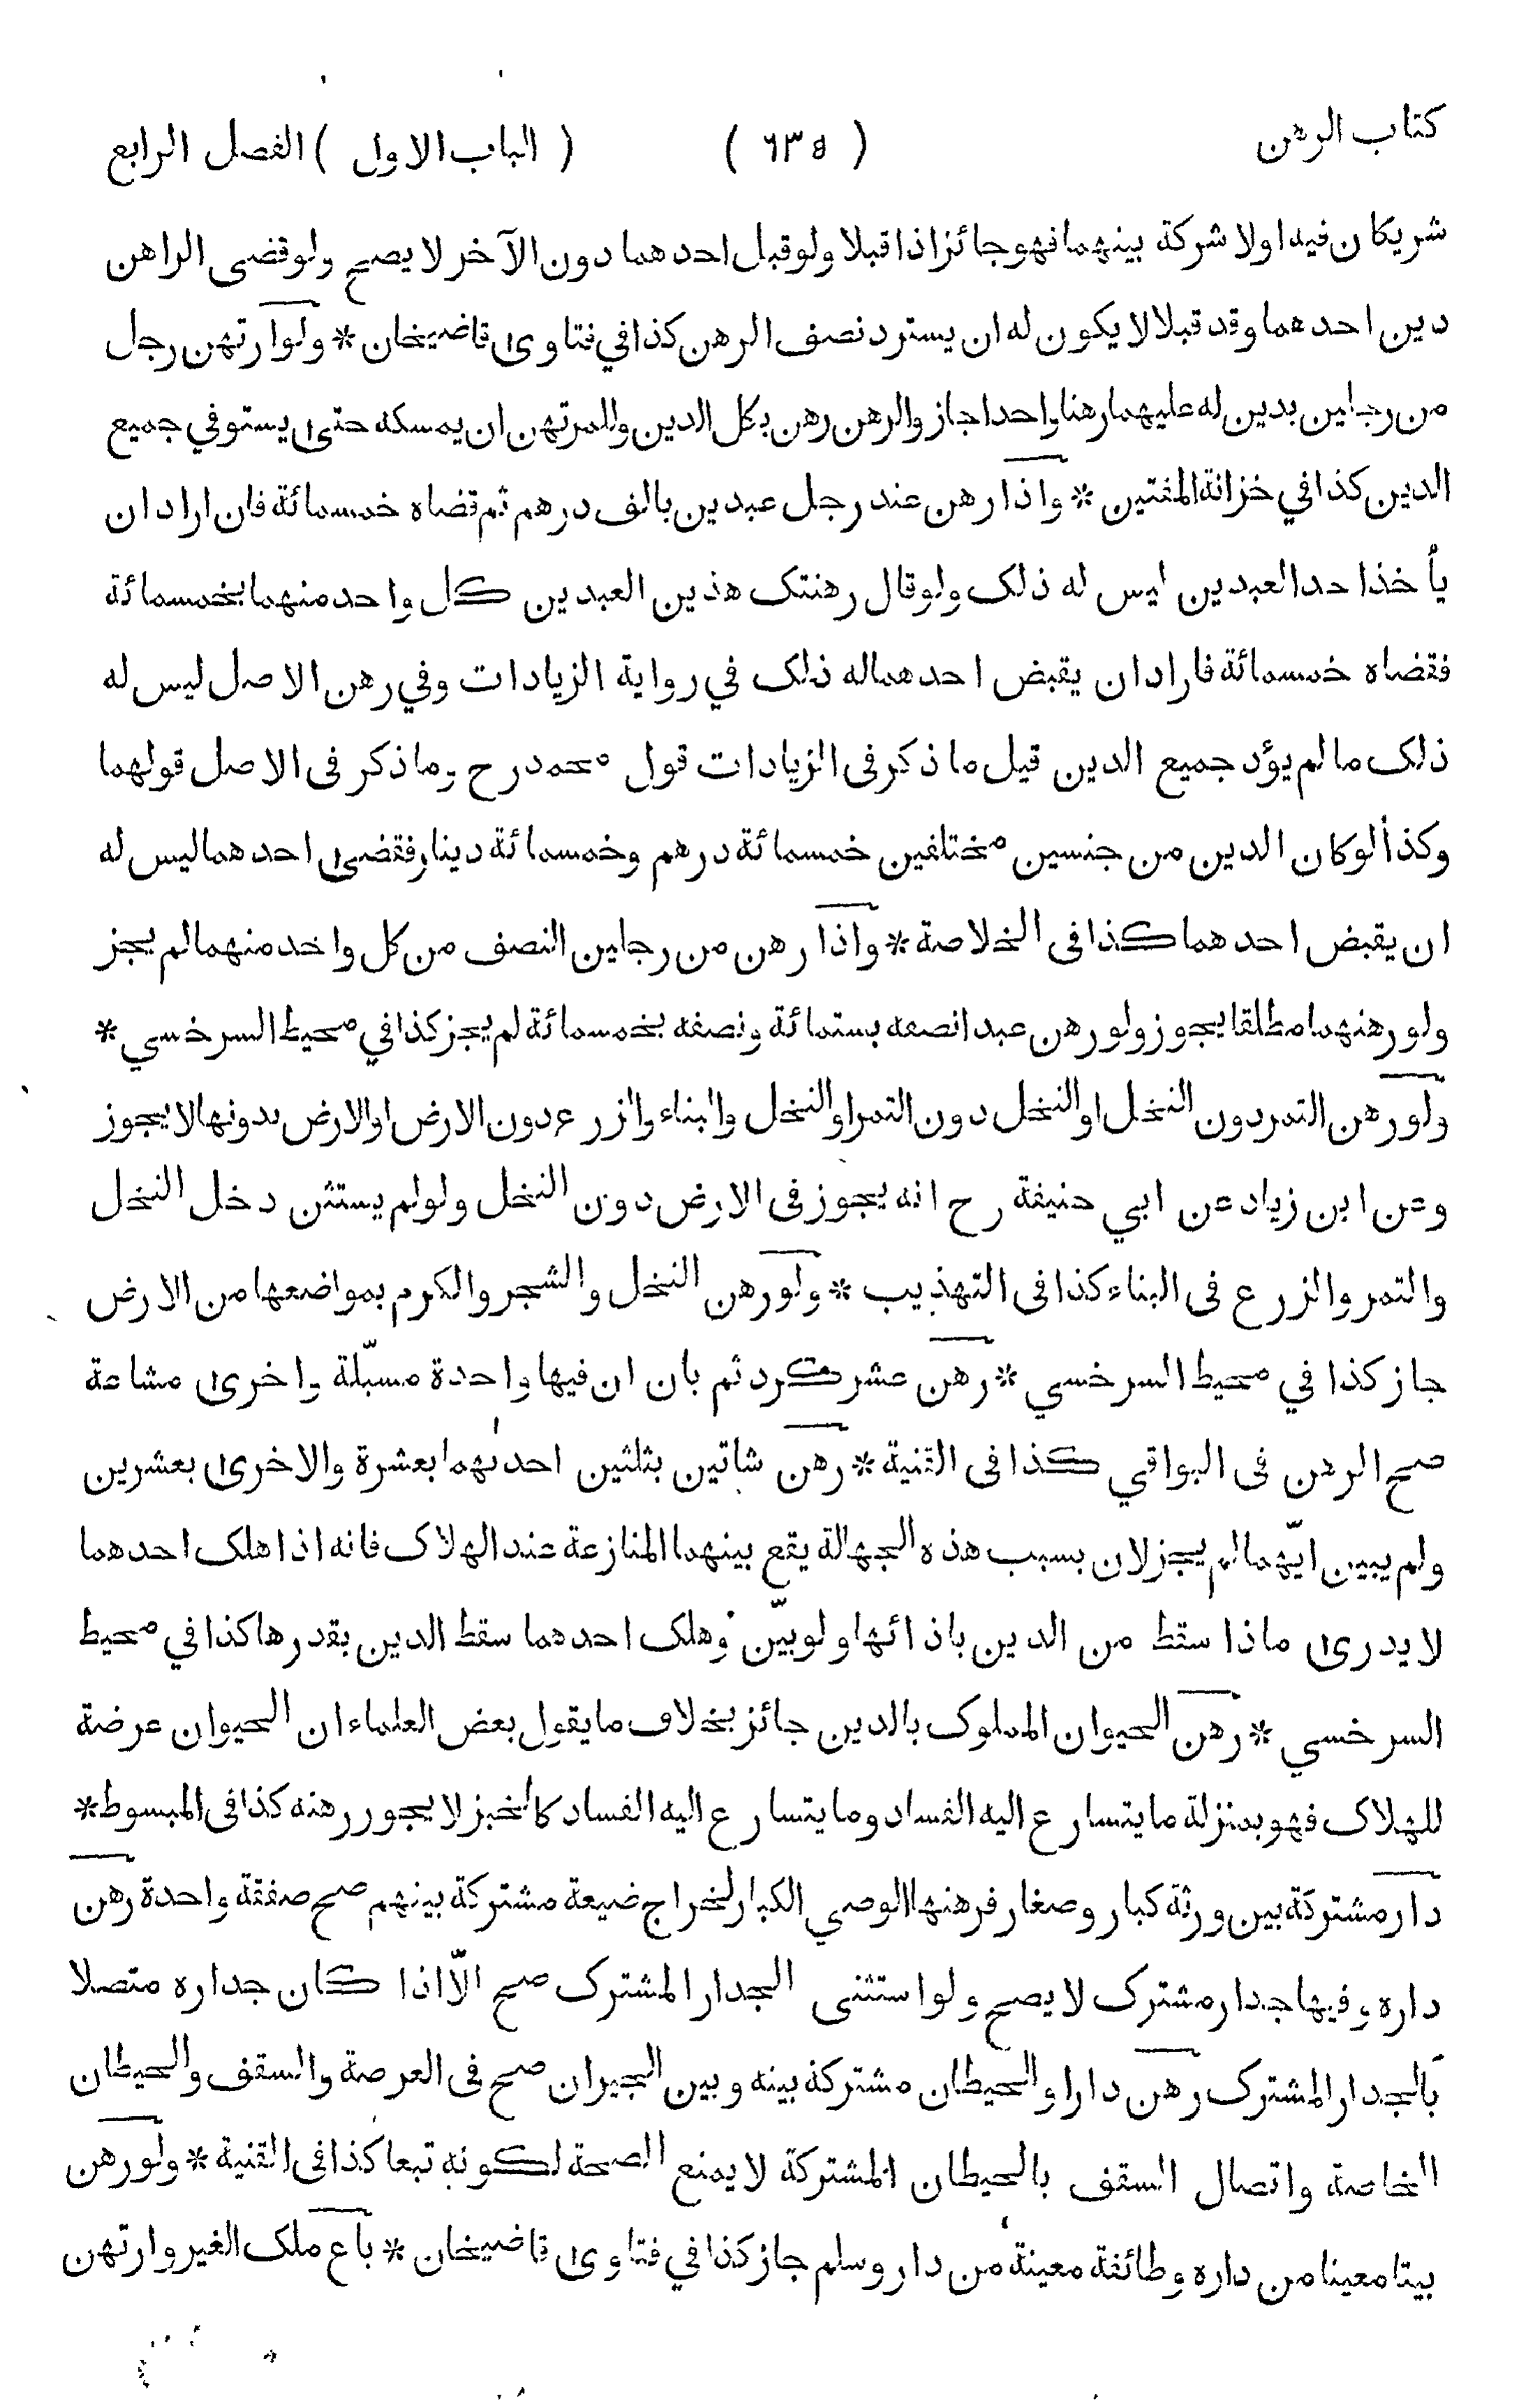 كتاب الرهن ( ٦٣٥ ) ( الباب الاول ) الفصل الرابع
شريكان فيه اولا شركة بينهما فهو جائز اذا قبلا ولو قبل احدهما دون الآخر لا يصح ولو قضى الراهن
دين احدهما وقد قبلا لا يكون له ان يسترد نصف الرهن كذا في فتاوى قاضيخان * ولو ارتهن رجل
من رجلين بدين له عليهما رهنا واحدا جاز والرهن رهن بكل الدين وللمرتهن ان يمسكه حتى يستوفي جميع
الدين كذا في خزانة المفتين * واذا رهن عند رجل عبدين بالف درهم ثم قضاه خمسمائة فان اراد ان
يأخذ احد العبدين ليس له ذلك ولو قال رهنتك هذين العبدين كل واحد منهما بخمسمائة
فقضاه خمسمائة فاراد ان يقبض احدهما له ذلك في رواية الزيادات وفي رهن الاصل ليس له
ذلك ما لم يؤد جميع الدين قيل ما ذكر فى الزيادات قول محمد رح وما ذكر فى الاصل قولهما
وكذا لو كان الدين من جنسين مختلفين خمسمائة درهم وخمسمائة دينار فقضى احدهما ليس له
ان يقبض احدهما كذا فى الخلاصة * واذا رهن من رجلين النصف من كل واحد منهما لم يجز
ولو رهنهما مطلقا يجوز ولو رهن عبدا نصفه بستمائة ونصفه بخمسمائة لم يجز كذا في محيط السرخسي *
ولو رهن الثمر دون النخل او النخل دون الثمر او النخل والبناء والزرع دون الارض او الارض بدونها لا يجوز
وعن ابن زياد عن ابي حنيفة رح انه يجوز فى الارض دون النخل ولو لم يستثن دخل النخل
والثمر والزرع فى البناء كذا فى التهذيب * ولو رهن النخل والشجر والكرم بمواضعها من الارض
جاز كذا في محيط السرخسي * رهن عشر كرد ثم بان ان فيها واحدة مسبّلة واخرى مشاعة
صح الرهن فى البواقي كذا فى القنية * رهن شاتين بثلثين احدٰهما بعشرة والاخرى بعشرين
ولم يبين ايّهما لم يجز لان بسبب هذه الجهالة يقع بينهما المنازعة عند الهلاك فانه اذا هلك احدهما
لا يدرى ماذا سقط من الدين باذائها ولو بيّن وهلك احدهما سقط الدين بقدرها كذا في محيط
السرخسي * رهن الحيوان المملوك بالدين جائز بخلاف ما يقول بعض العلماء ان الحيوان عرضة
للهلاك فهو بمنزلة ما يتسارع اليه الفساد وما يتسارع اليه الفساد كالخبز لا يجوز رهنه كذا فى المبسوط *
دار مشتركة بين ورثة كبار وصغار فرهنها الوصي الكبار لخراج ضيعة مشتركة بينهم صح صفقة واحدة رهن
داره وفيها جدار مشترك لا يصح ولو استثنى الجدار المشترك صح الّا اذا كان جداره متصلا
بالجدار المشترك رهن دارا والحيطان مشتركة بينه وبين الجيران صح فى العرصة والسقف والحيطان
الخاصة واتصال السقف بالحيطان المشتركة لا يمنع الصحة لكونه تبعا كذا فى القنية * ولو رهن
بيتا معينا من داره وطائفة معينة من دار وسلم جاز كذا في فتاوى قاضيخان * باع ملك الغير وارتهن